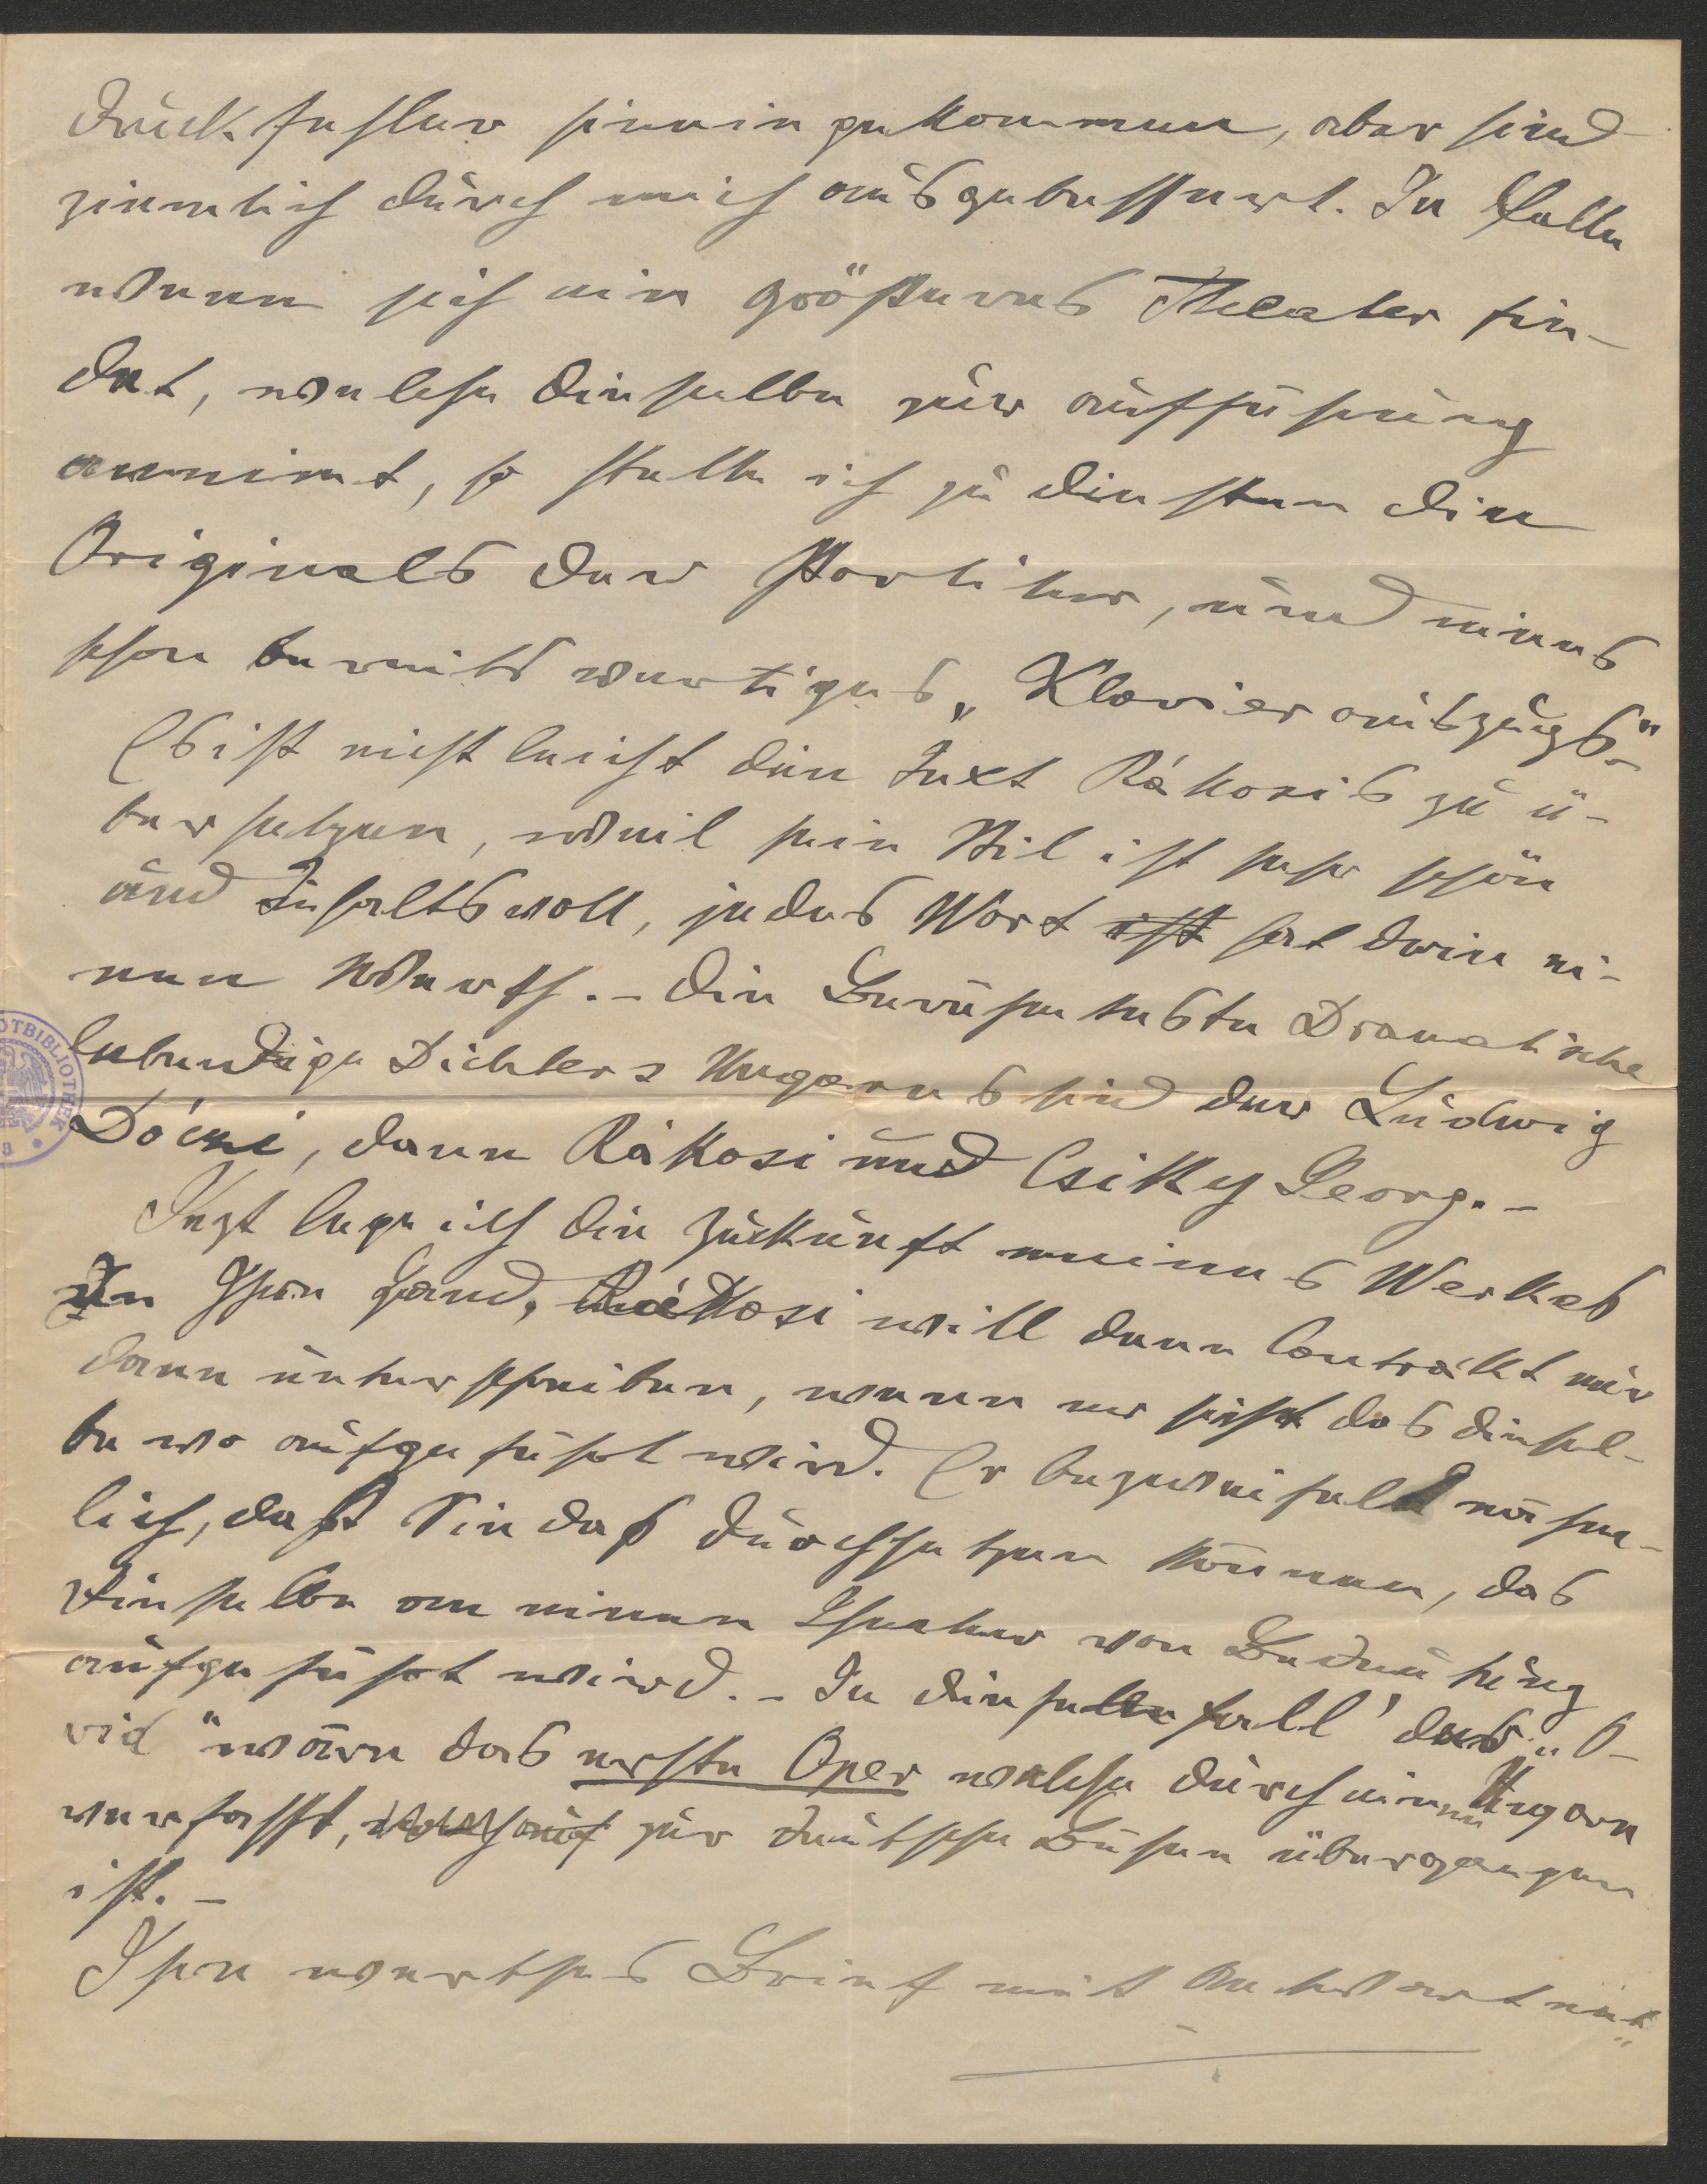 Druckfehler hinein gekommen, aber sind
ziemlich durch mich ausgebessert. In Falle
wenn sich ein größeres Theater fin-
det, welche dieselbe zur aufführung
annimt, so stelle ich zu diensten die
Originals der Partitur, und eines
schon bereits vertiges „Klavierauszugs"-
Es ist nicht leicht den Text Rákosis zu ü-
bersetzen, weil sein Stil ist sehr schön
und Inhaltsvoll, jedes Wort ist hat drin ei-
nen Werth. - Die Berühmtesten Dramatische
lebendige Dichters Ungarns sind der Ludwig
Dóczi, dann Rákosi und Csiky Georg. -
Jezt lege ich die Zuckunft meines Werkes
In Ihre Hand, Rákosi will denn Contrákt nur
dann unterschreiben, wenn er sieht das diesel-
be wo aufgeführt wird. Er bezweifelt nähm-
lich, daß Sie daß durchsetzen können, das
dieselbe an einem Theater von Bedeutung
aufgeführt wird. - In dieselbe fall' des „O-
vid" wäre das erste Oper welche durch einem Ungarn
verfasst, zur deutsche Bühne übergangen
ist. -
Ihre werthes Brief mit Antwort